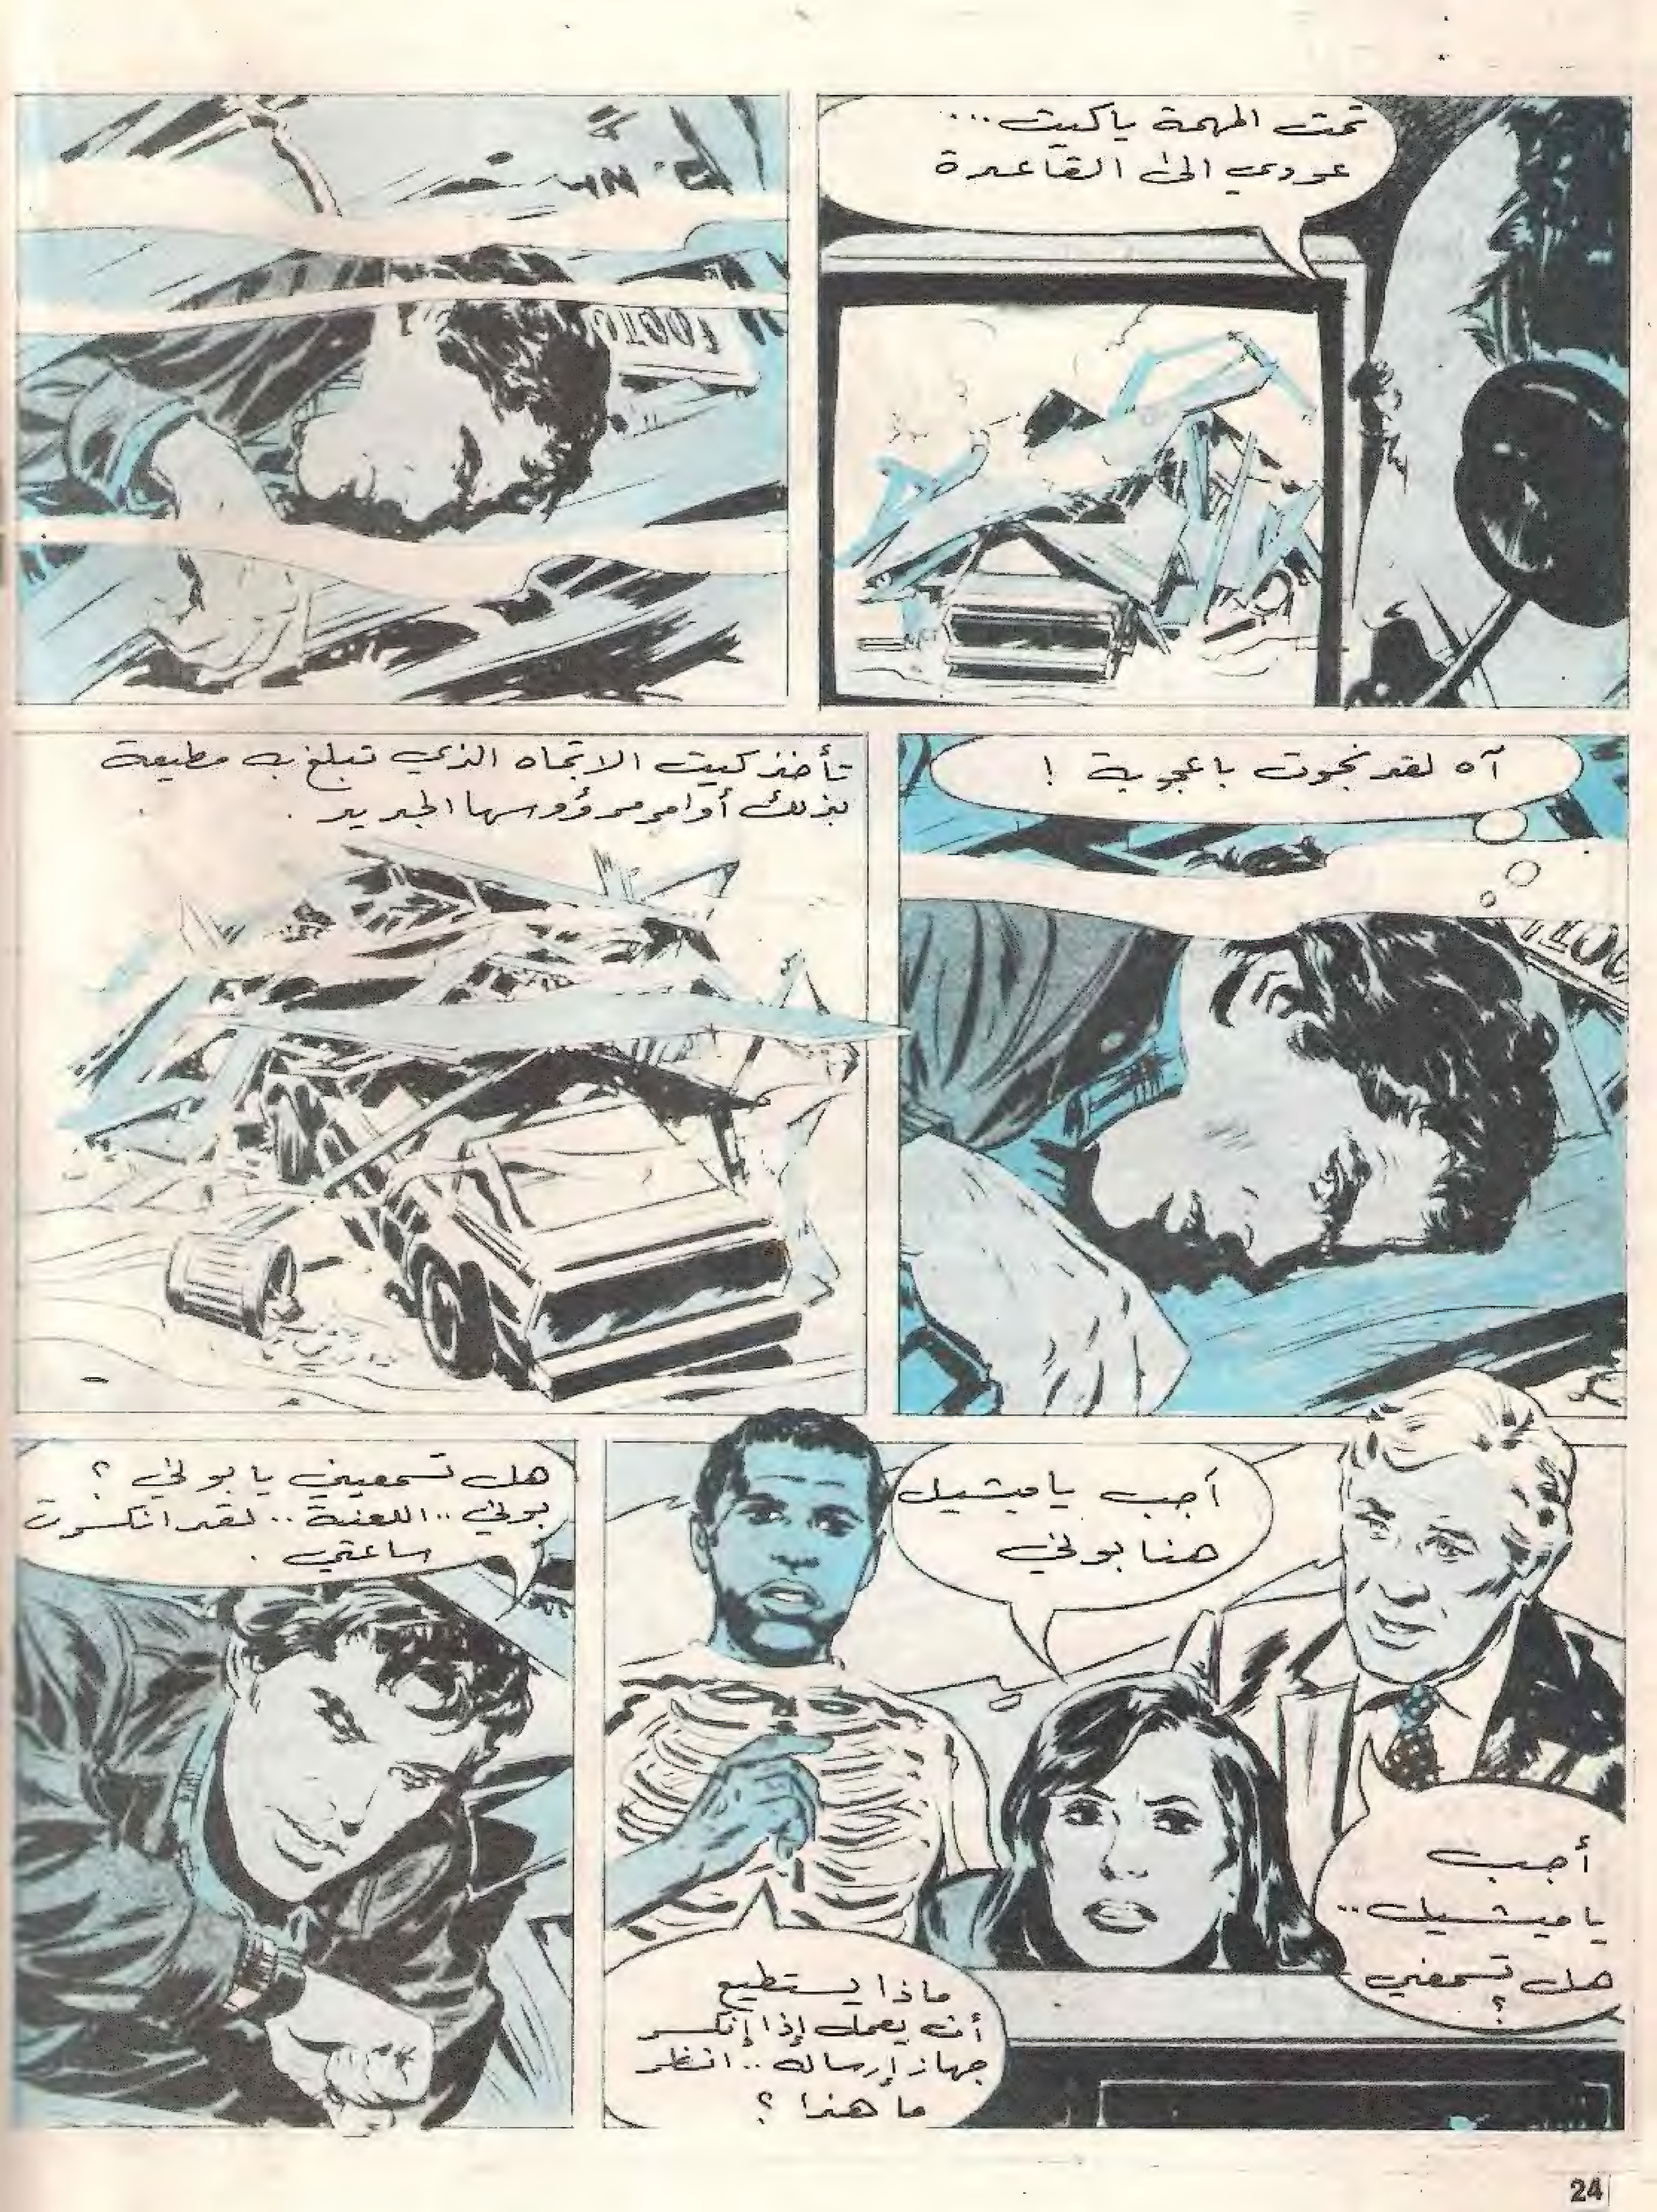 تمت المهمة ياكيت...
عودي الى القاعدة
آه لقد نجوت باعجوبة !
تأخذ كيت الاتجاه الذي تبلغ به مطيعة
بذلك أوامر مرؤوسها الجديد .
أجب
ياميشيل..
هل تسمعني
؟
أجب ياميشيل
هنا بوني
ماذا يستطيع
أن يعمل إذا إنكسر
جهاز إرساله .. انظر
ما هذا ؟
هل تسمعيني يا بوني ؟
بوني .. اللعنة .. لقد انكسرت
ساعتي .
24